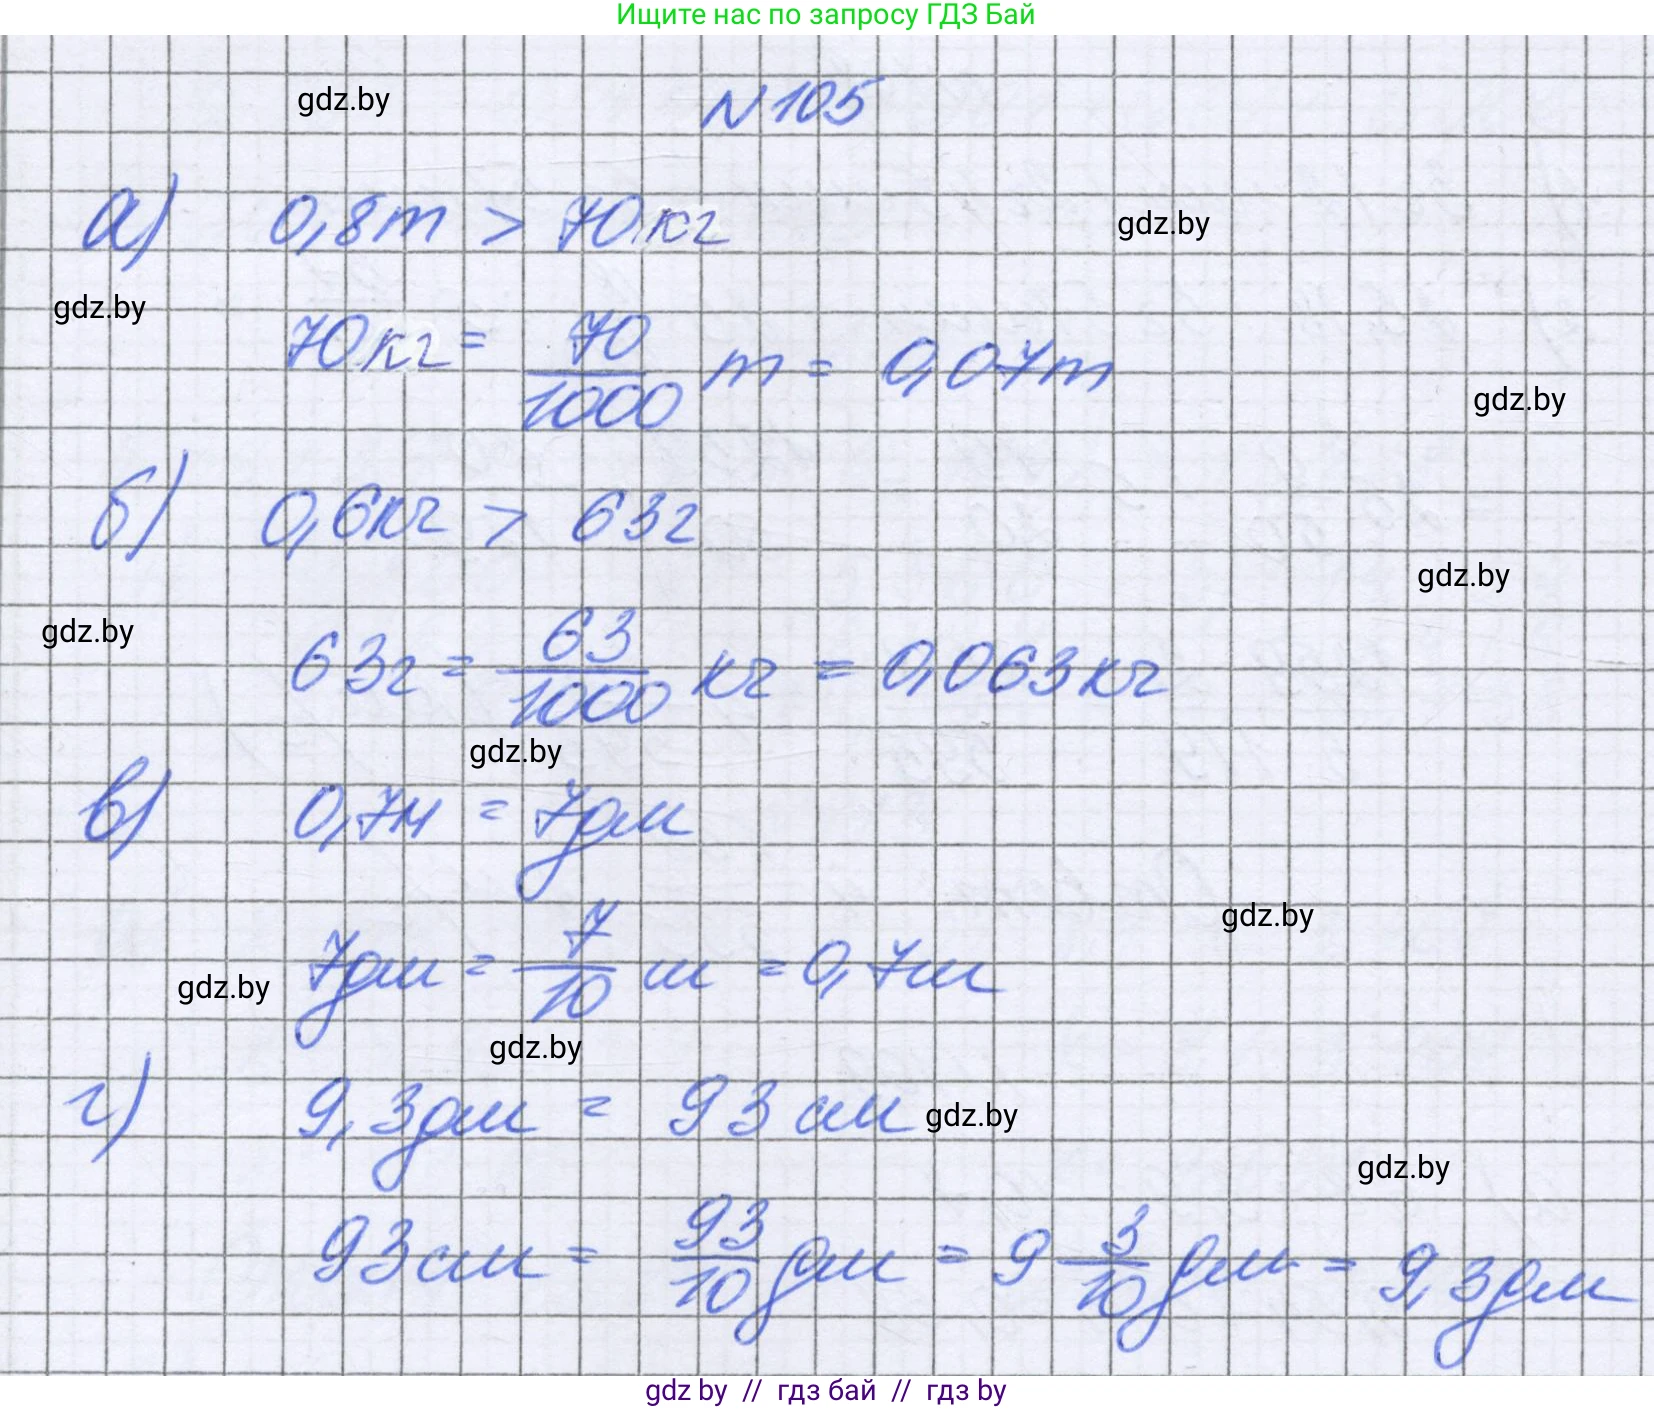 Ищите нас по запросу ГДЗ Бай
gdz.by
N 105
а) 0,8т > 70кг
gdz.by
gdz.by
70кг = 70/1000 т = 0,07т
gdz.by
б) 0,6кг > 63г
gdz.by
gdz.by
63г = 63/1000 кг = 0,063кг
gdz.by
в) 0,7м = 7дм
gdz.by
7дм = 7/10 м = 0,7м
gdz.by
gdz.by
г) 9,3дм = 93 см
gdz.by
gdz.by
93см = 93/10 дм = 9 3/10 дм = 9,3дм
gdz by // гдз бай // гдз by